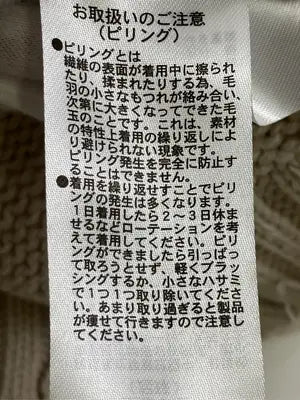 お取扱いのご注意
(ピリング)
●ピリングとは
繊維の表面が着用中に擦られ
たり、揉まれたりする為、毛
羽の小さなもつれが絡み合い、
次第に大きくなってできた毛
玉のことです。これは、素材
の特性上着用の繰り返しによ
り避けられない現象です。
ピリング発生を完全に防止す
ることはできません。
●着用を繰り返すことでピリン
グの発生は多くなります。
1日着用したら2~3日休ま
せるなどローテーションを考
えて着用してください。ピリ
ングができましたら引っぱっ
て取ろうとせず、軽くブラッ
シングするか、小さなハサミ
で1つ1つ取り除いてくださ
い。あまり取り過ぎると製品
が痩せて行きますので注意し
てください。